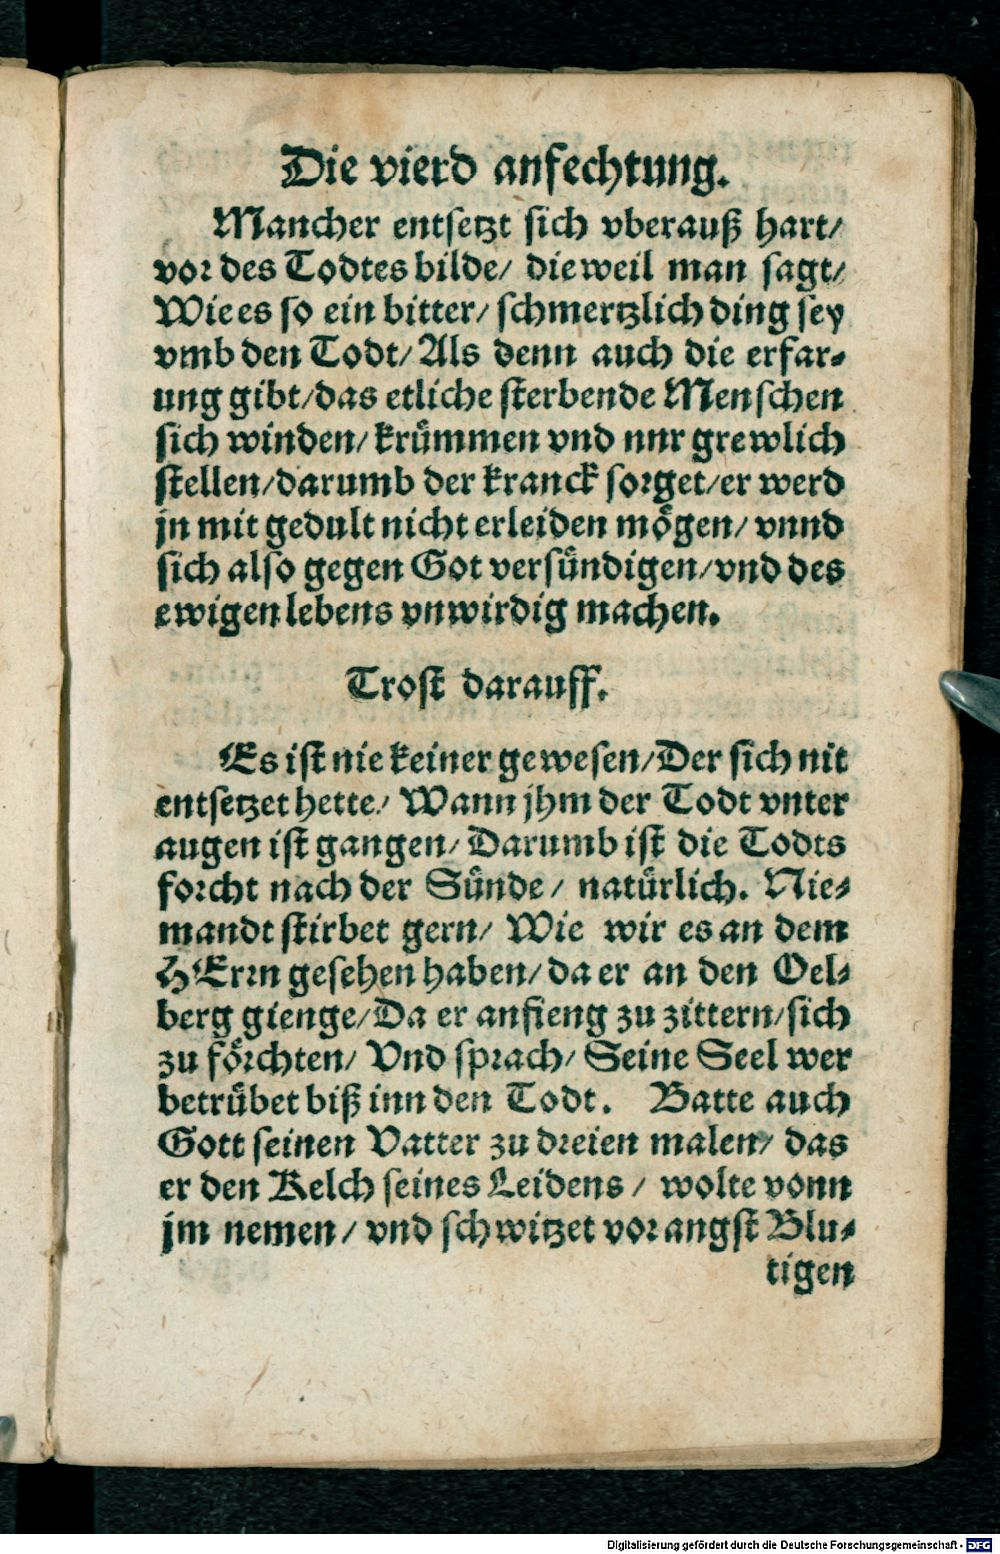 Die vierd anfechtung.
Mancher entsetzt sich vberauß hart/
vor des Todtes bilde/ dieweil man sagt/
Wie es so ein bitter/ schmertzlich ding sey
vmb den Todt/ Als denn auch die erfar-
ung gibt/ das etliche sterbende Menschen
sich winden/ krümmen vnd nur grewlich
stellen/ darumb der kranck sorget/ er werd
jn mit gedult nicht erleiden mögen/ vnnd
sich also gegen Got versündigen/ vnd des
ewigen lebens vnwirdig machen.
Trost darauff.
Es ist nie keiner gewesen/ Der sich nit
entsetzet hette/ Wann jhm der Todt vnter
augen ist gangen/ Darumb ist die Todts
forcht nach der Sünde/ natürlich. Nie-
mandt stirbet gern/ Wie wir es an dem
HErrn gesehen haben/ da er an den Oel-
berg gienge/ Da er anfieng zu zittern/ sich
zu förchten/ Vnd sprach/ Seine Seel wer
betrübet biß inn den Todt. Batte auch
Gott seinen Vatter zu dreien malen/ das
er den Kelch seines Leidens/ wolte vonn
jm nemen/ vnd schwitzet vor angst Blu-
tigen
Digitalisierung gefördert durch die Deutsche Forschungsgemeinschaft - DFG